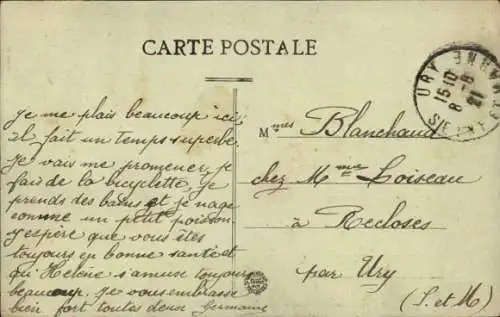 CARTE POSTALE
URY SNE-ET-MARNE
15 10
8 - 8
21
Je me plais beaucoup ici
il fait un temps superbe
je vais me promener, je
fais de la bicyclette, je
prends des bains et je nage
comme un petit poisson
j'espère que vous êtes
toujours en bonne santé et
qu'Hélène s'amuse toujours
beaucoup, je vous embrasse
bien fort toutes deux Germaine
Mmes Blanchaud
chez Mme Loiseau
à Recloses
par Ury
(S. et M)